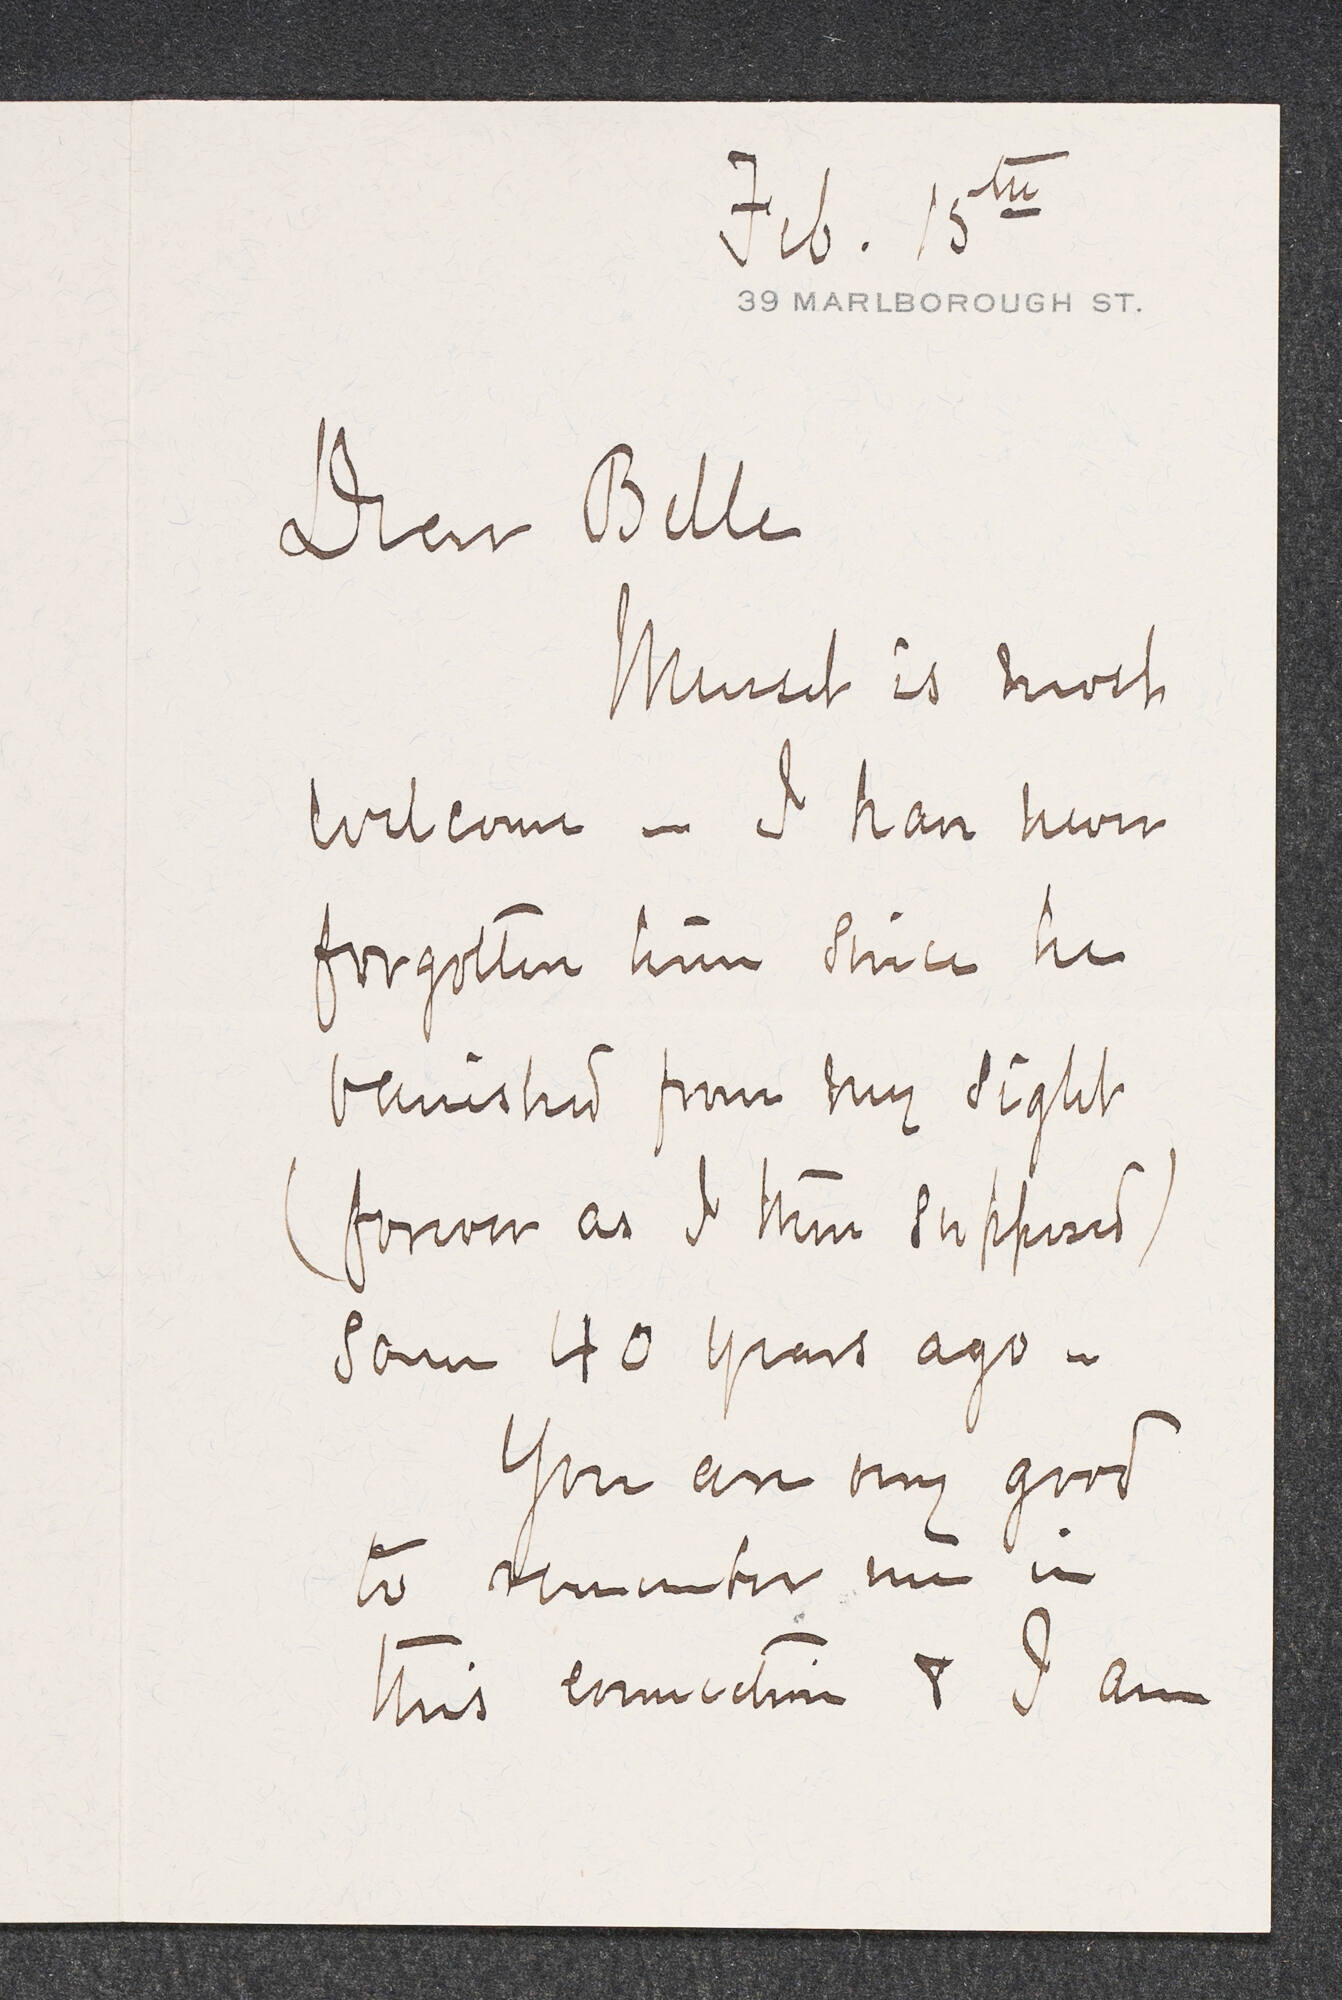 Feb. 15th
39 MARLBOROUGH ST.
Dear Belle
Musset is most
welcome – I have never
forgotten him since he
vanished from my sight
(forever as I then supposed)
some 40 years ago –
You are very good
to remember me in
this connection & I am